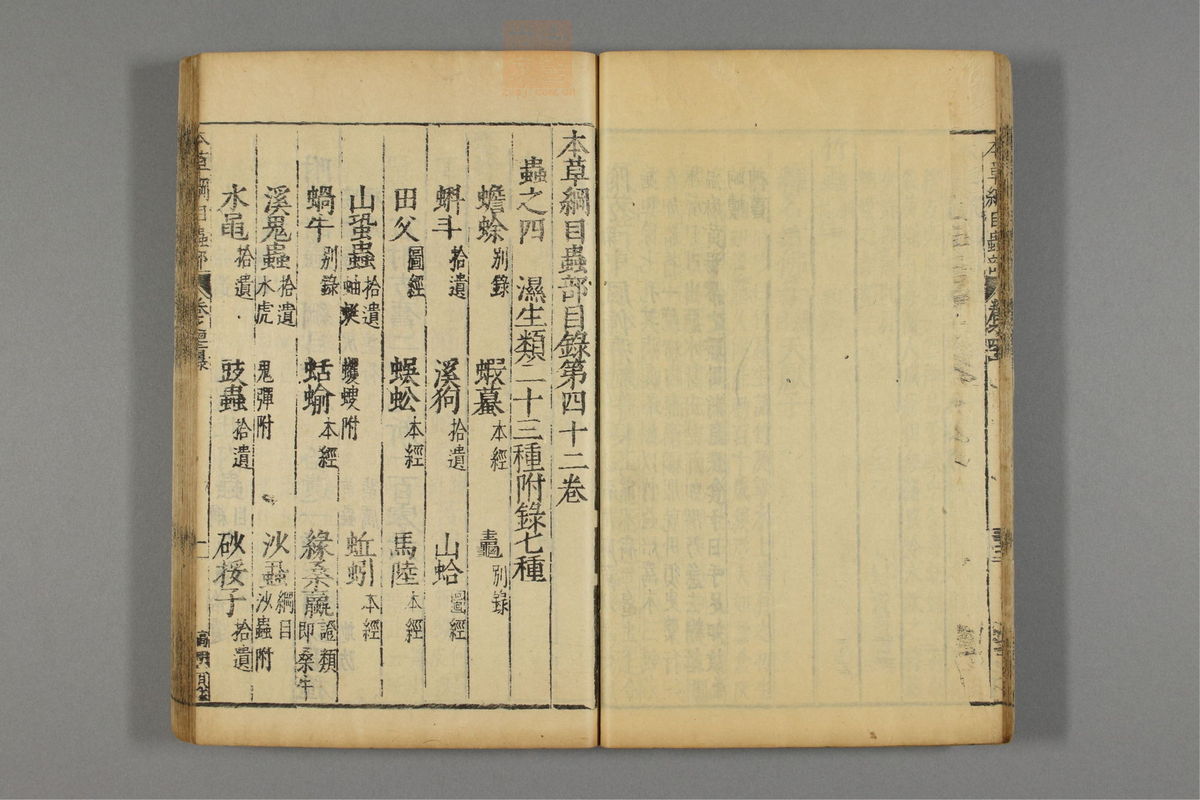 本草綱目蟲部目錄第四十二卷
蟲之四 濕生類二十三種附錄七種
蟾蜍 別錄 蝦蟇 本經 鼃 別錄
蝌斗 拾遺 溪狗 拾遺 山蛤 圖經
田父 圖經 蜈蚣 本經 馬陸 本經
山蛩蟲 拾遺 蚰蜒 蠼螋附 蚯蚓 本經
蝸牛 別錄 蛞蝓 本經 緣桑蠃 證類 即桑牛
溪鬼蟲 拾遺 水虎 鬼彈附 沙蝨 綱目 沙蟲附
水黽 拾遺 豉蟲 拾遺 砂挼子 拾遺
本草綱目蟲部